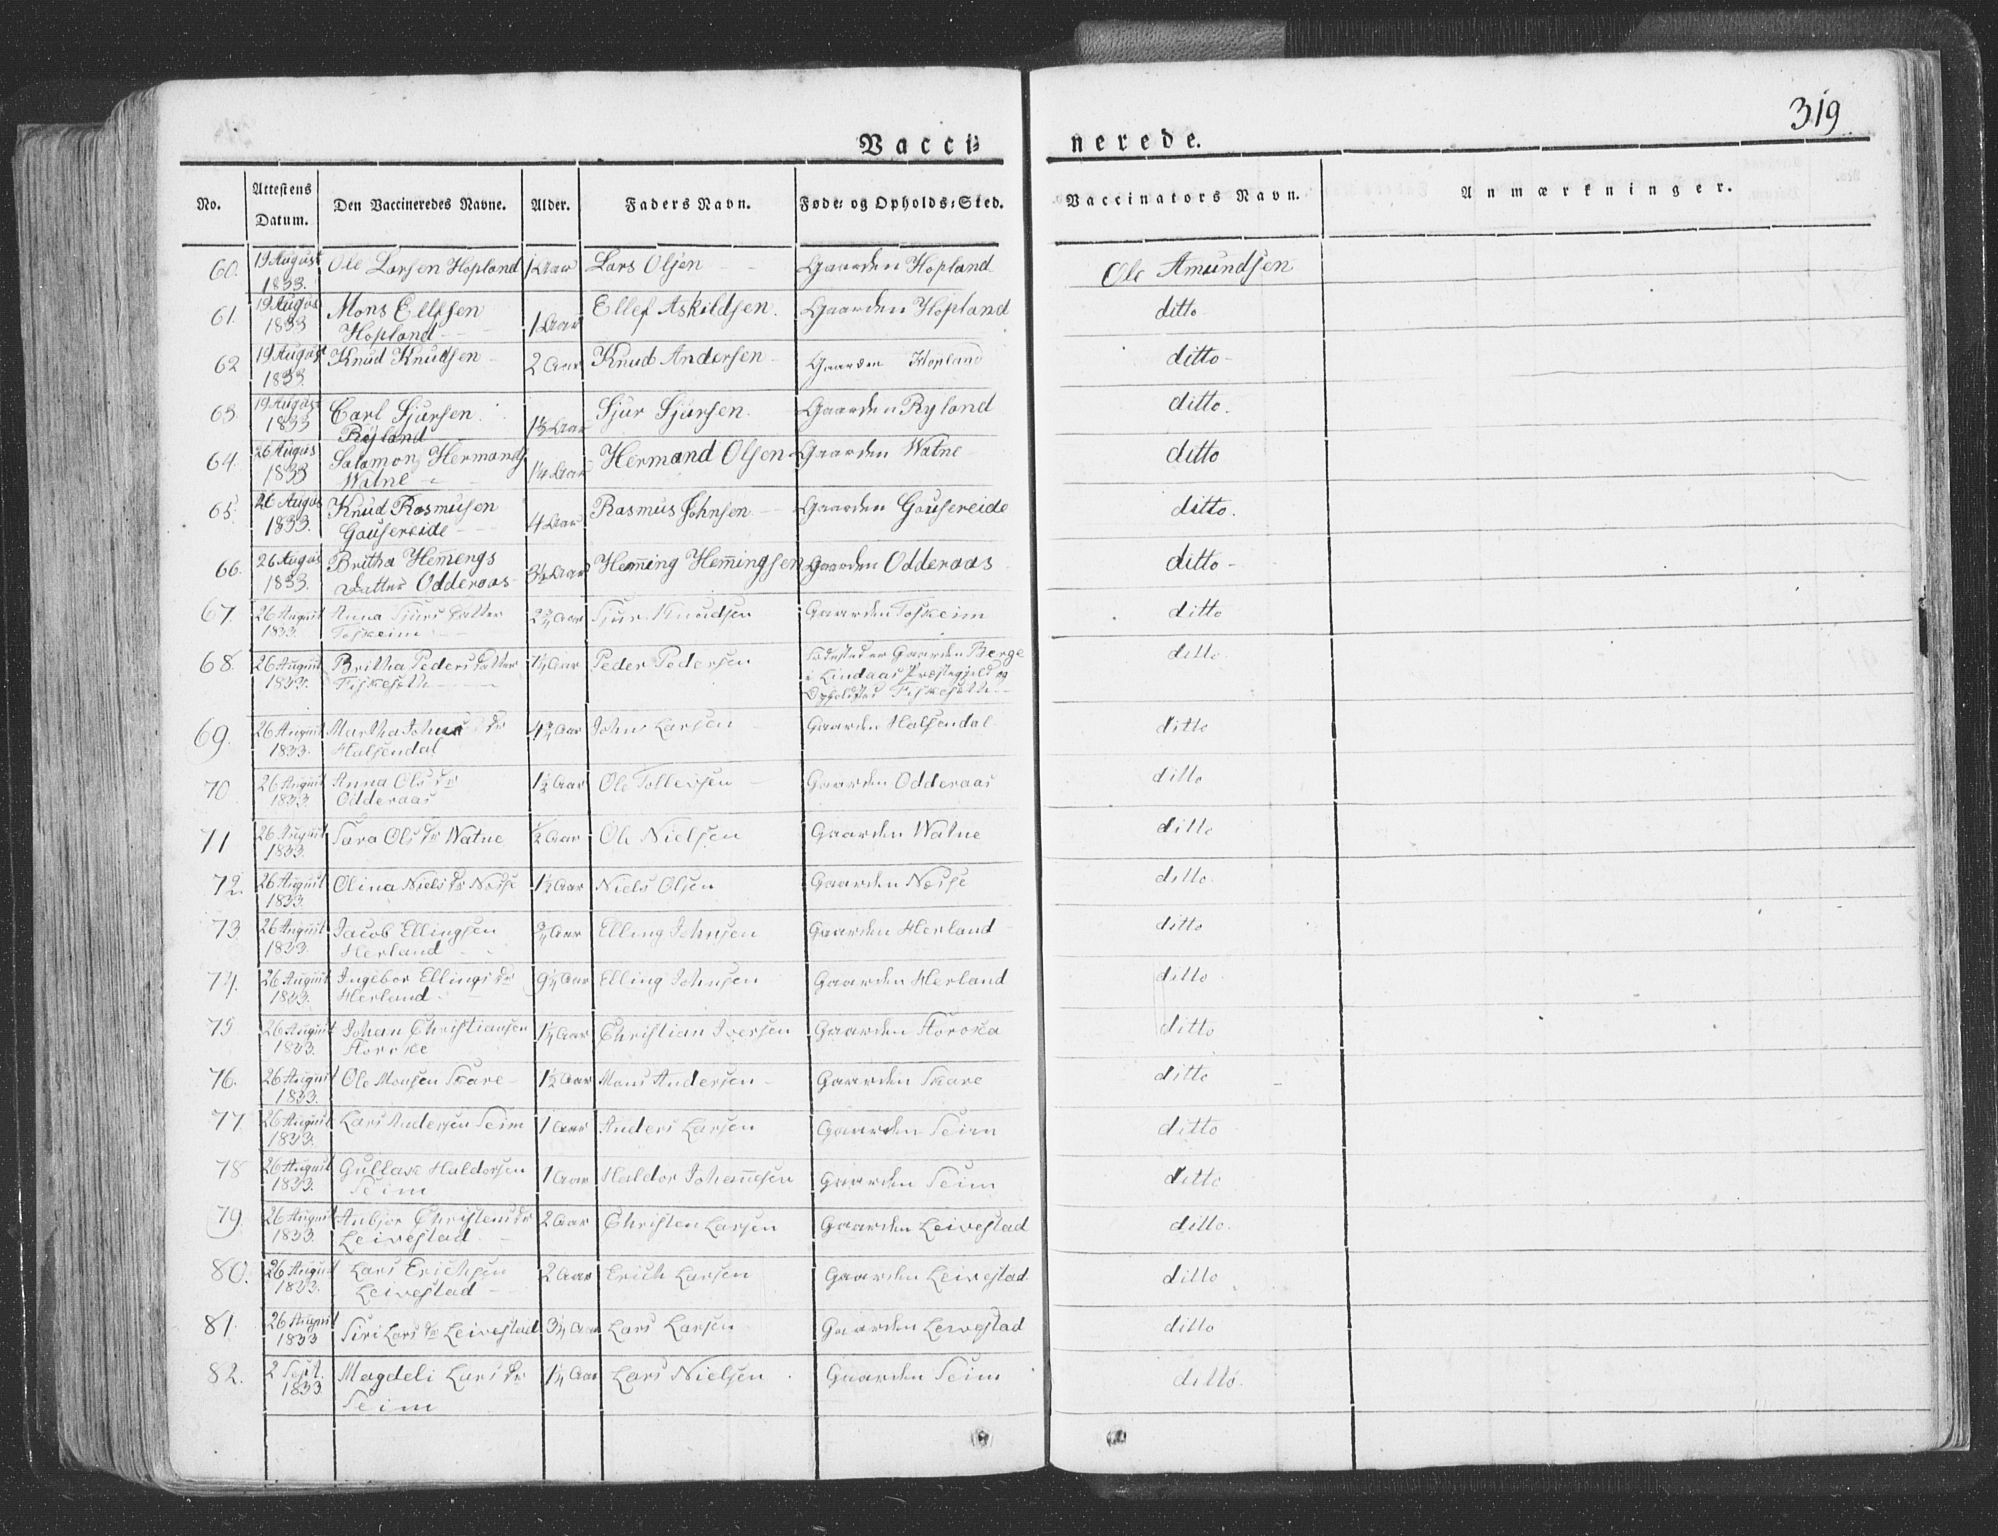 319
Vacci= nerede.
No. Attestens Datum. Den Vaccineredes Navne. Alder. Faders Navn. Føde= og Opholds=Sted. Vaccinators Navn. Anmærkninger.
60. 19 August Ole Larsen Hopland Lars Olsen Gaarden Hopland Ole Amundsen
1833.
61. 19 Augus Mons Ellefsen 1 Aar Ellef Askildsen. Gaarden Hopland ditto
1833 Hopland
62 19 August Knud Knudsen 2 Aar Knud Andersen Gaarden Hopland ditto
1833.
63. 19 August Carl Sjursen 1½ Aar Sjur Sjursen. Gaarden Ryland ditto.
1833 Ryland
64. 26 Augus Salamon Hermands 1¼ Aar Hermand Olsen Gaarden Watne ditto
1833 Watne
65. 26 Augus Knud Rasmusen 4 Aar Rasmus Johnsen Gaarden Gousereide ditto.
1833. Gousereide
66. 26 Augus Britha Hemengs 3½ Aar Hem̅ing Hem̅ingsen Gaarden Odderaas ditto
1833. Datter Odderaas
67. 26 August Anna Sjurs Datter 2¾ Aar Sjur Knudsen Gaarden Foskeim ditto
1833. Foskeim
68. 26 August Britha Peders Datter Aar Peder Pedersen Fødested er Gaarden Berge ditto
1833. Fiskeseth i Lindaas Præstegjeld og
Opholdsted Fiskeseth
69. 26 August Martha Johns Dr 4¾ Aar John Larsen Gaarden Halsendal ditto
1833. Halsendal
70 26 August Anna Ols Dr 1½ Aar Ole Tollevsen Gaarden Odderaas ditto
1833. Odderaas
71 26 August Sara Ols Dr Watne ½ Aar Ole Nielsen Gaarden Watne ditto
1833.
72. 26 August Olina Niels Dr Nesse 1½ Aar Niels Olsen Gaarden Nesse ditto
1833.
73 26 August Jacob Ellingsen ¾ Aar Elling Johnsen Gaarden Herland ditto
1833. Herland
74. 26 August Ingebor Ellings Dr 9¼ Aar Elling Johnsen Gaarden Herland ditto
1833. Herland
75 26 August Johan Christiansen 1¼ Aar Christian Iversen Gaarden ditto
1833.
76. 26 August Ole Monsen Skare 1½ Aar Mons Andersen Gaarden Skare ditto
1833.
77. 26 August Lars Andersen Seim 1 Aar Anders Larsen Gaarden Seim ditto
1833.
78 26 August Gullak Haldorsen 1 Aar Haldor Johan̅esen Gaarden Seim ditto
1833. Seim
79. 26 August Anbjor Christens Dr 2 Aar Christen Larsen Gaarden Leivestad ditto.
1833. Leivestad
80. 26 August Lars Erichsen 2 Aar Erich Larsen Gaarden Leivestad ditto
1833. Leivestad
81. 26 August Siri Lars Dr Leivestad 3¼ Aar Lars Larsen Gaarden Leivestad ditto
1833
82. 2 Sept. Magdeli Lars Dr 1¼ Aar Lars Nielsen Gaarden Seim ditto.
1833 Seim